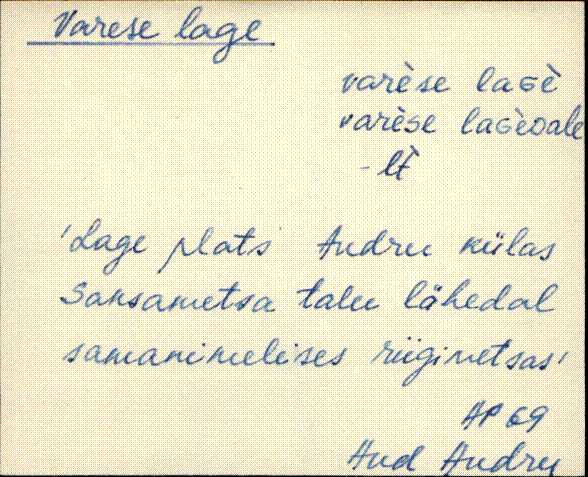 Varese lage
varèse laGè
varèse laGèDale
- lt̀
'Lage plats Andru külas
Saksametsa talu lähedal
samanimelises riigimetsas'
AP 69
Aud Andru